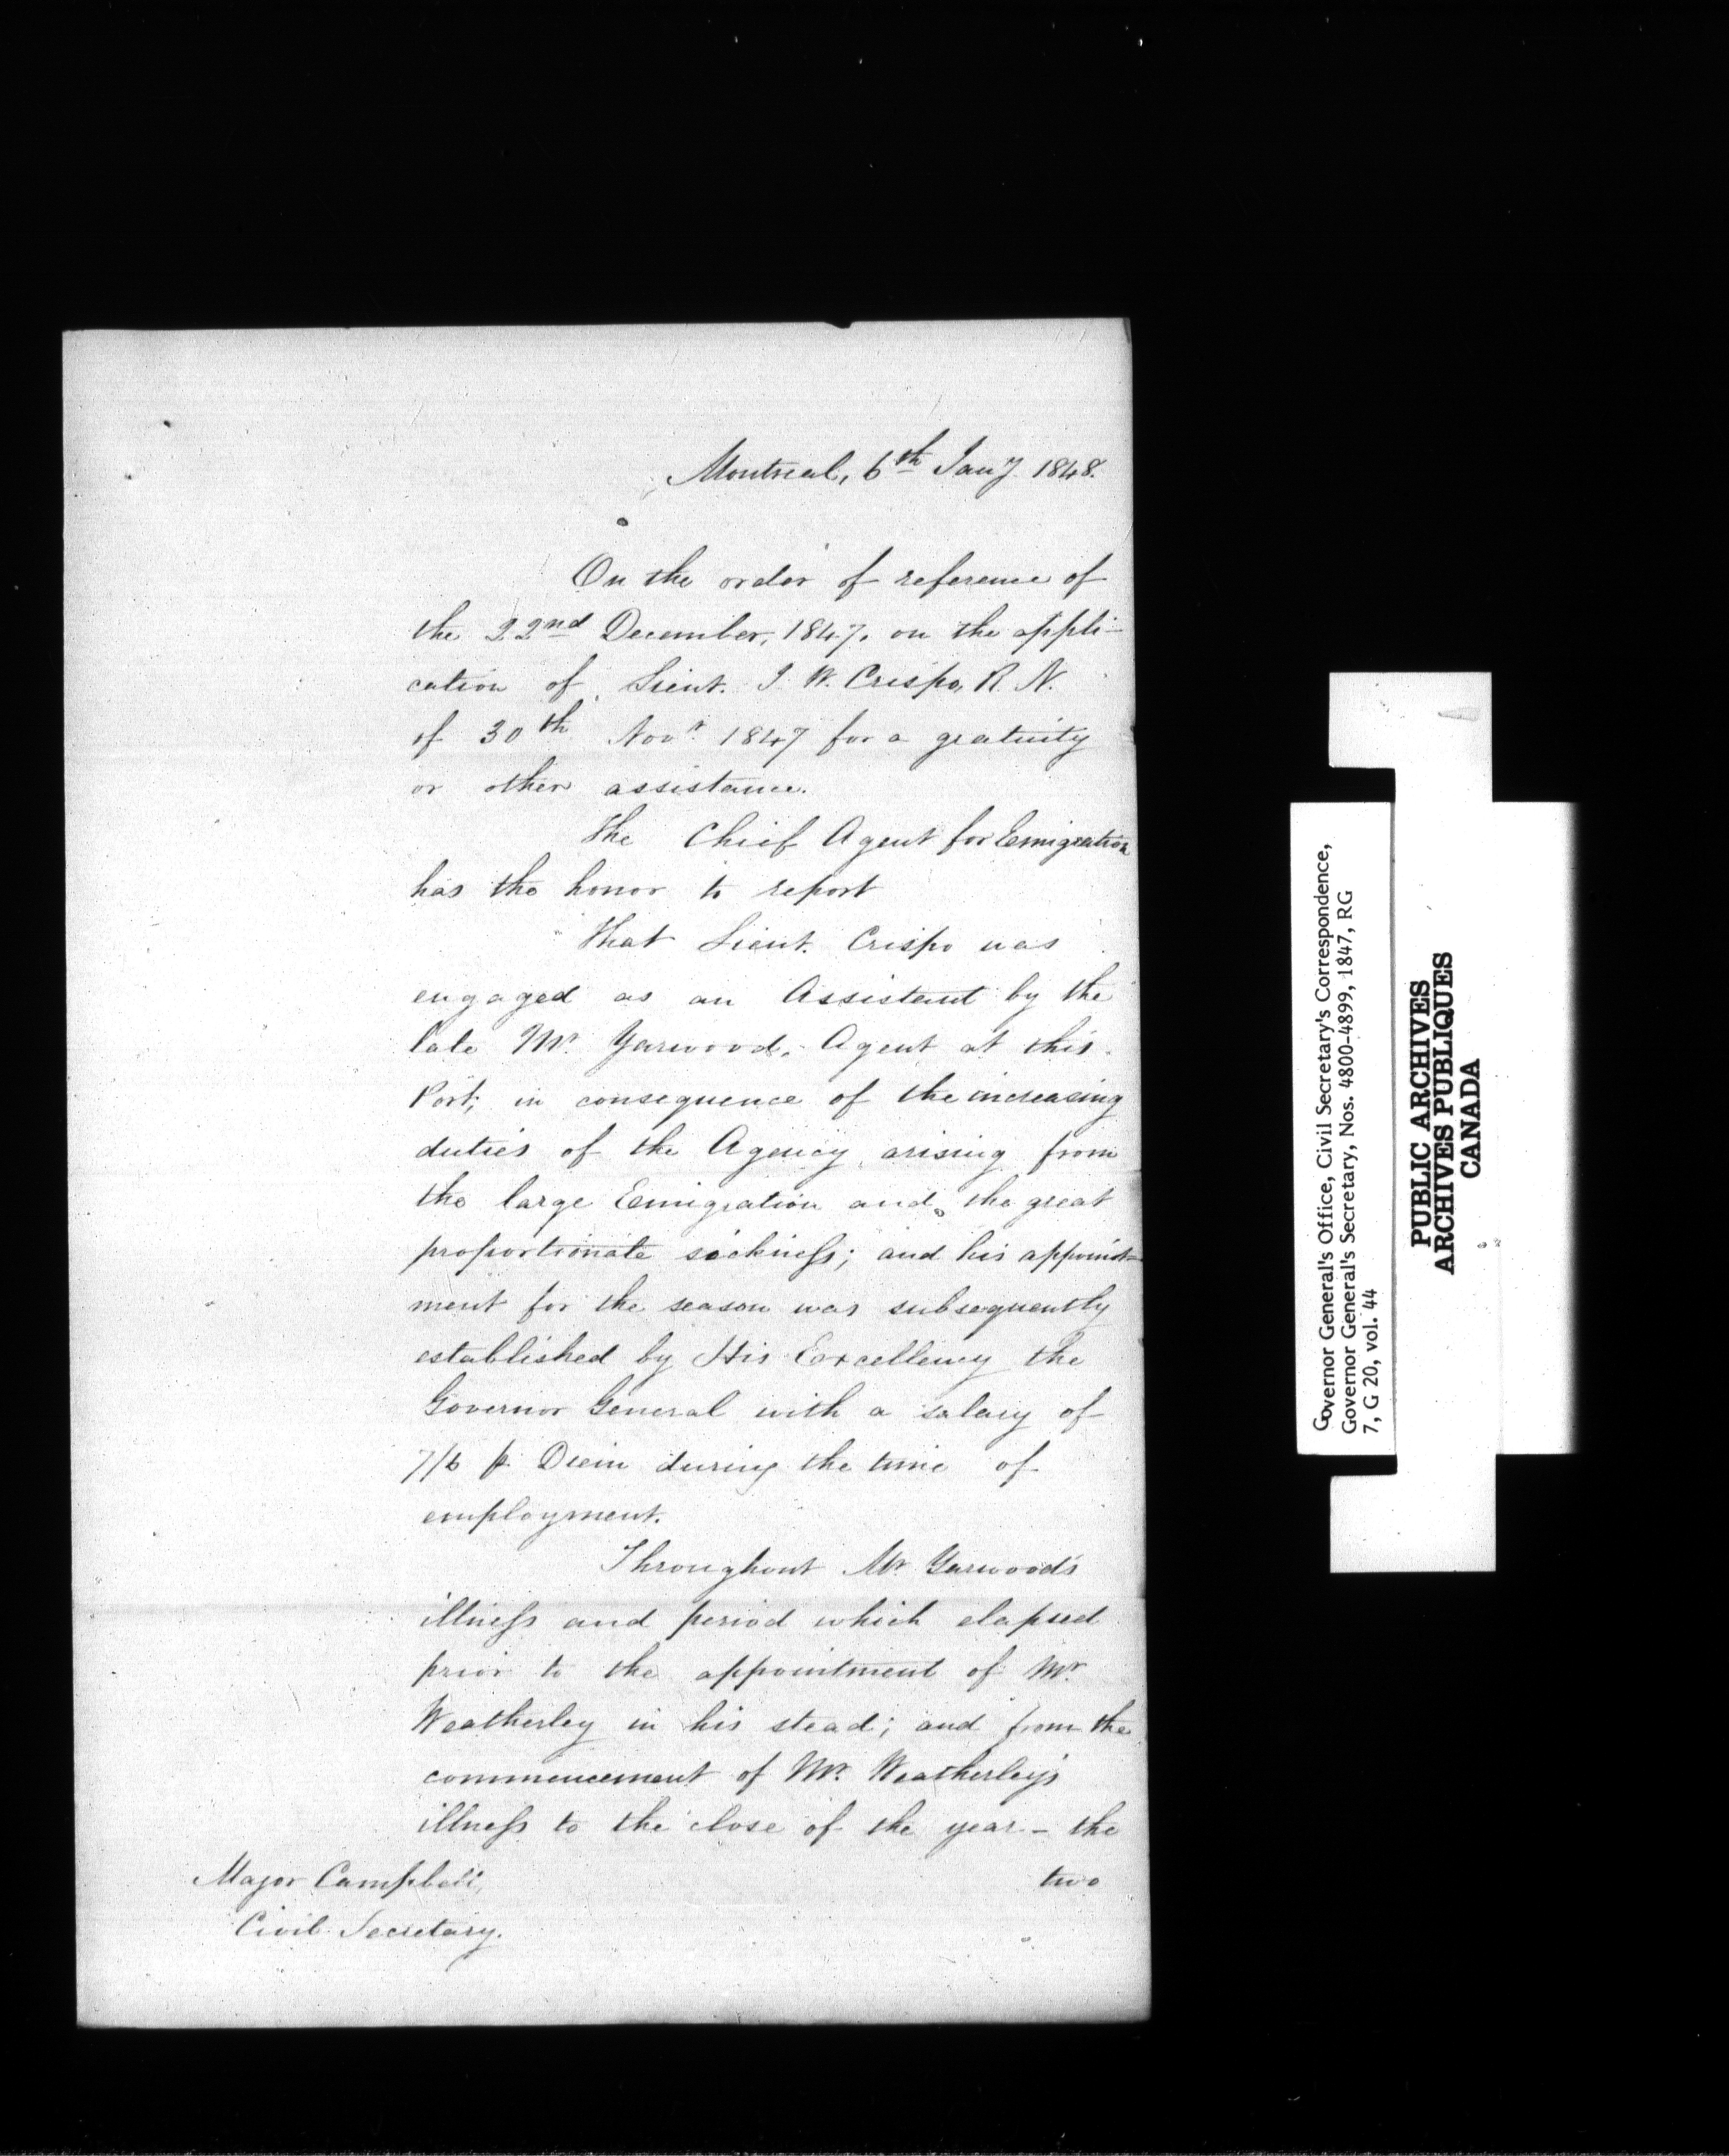 Montreal, 6th Jany 1848.
On the order of reference of
the 22nd December, 1847, on the appli-
cation of Lieut. J. W. Crispo, R. N.
of 30th Novr 1847 for a gratuity
or other assistance.
The Chief Agent for Emigration
has the honor to report
That Lieut. Crispo was
engaged as an Assistant by the
late Mr. Yarwood, Agent at this
Port, in consequence of the increasing
duties of the Agency, arising from
the large Emigration and the great
proportionate sickness; and his appoint-
ment for the season was subsequently
established by His Excellency the
Governor General with a salary of
7/6 p. Diem during the time of
employment.
Throughout Mr. Yarwood's
illness and period which elapsed
prior to the appointment of Mr.
Weatherley in his stead; and from the
commencement of Mr. Weatherley's
illness to the close of the year – the
two
Major Campbell,
Civil Secretary.
Governor General's Office, Civil Secretary's Correspondence,
Governor General's Secretary, Nos. 4800-4899, 1847, RG
7, G 20, vol. 44
PUBLIC ARCHIVES
ARCHIVES PUBLIQUES
CANADA